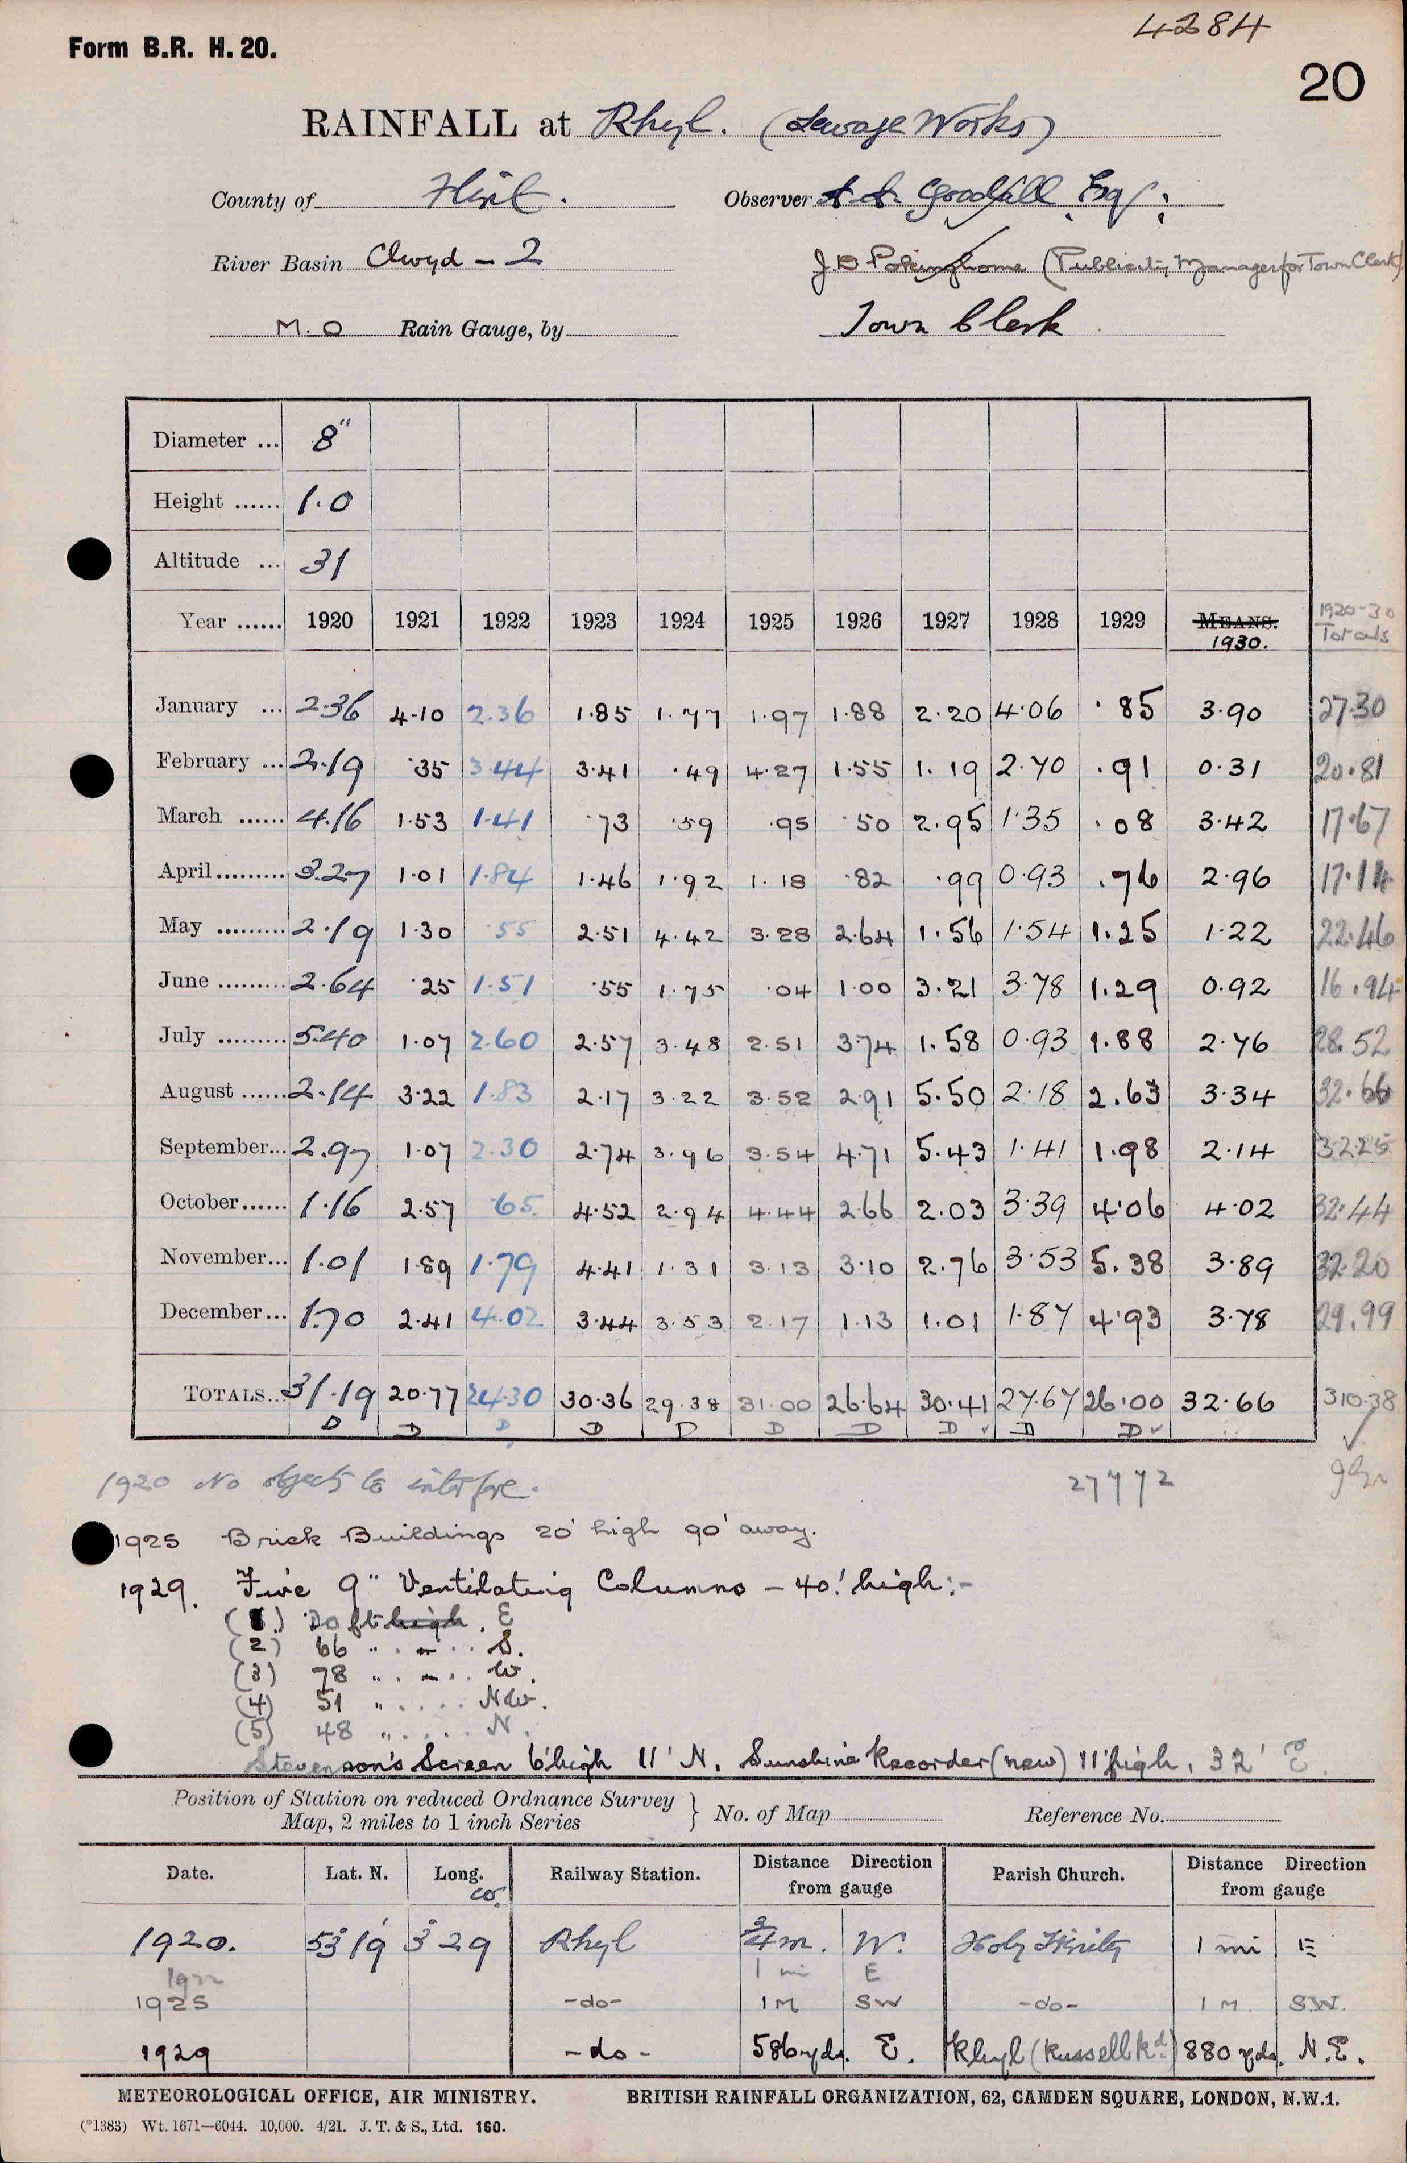 4284
Form B.R. H. 20.
20
RAINFALL at Rhyl. (Sewage Works)
County of Flint. Observer A. A. Goodall Esq;
River Basin Clwyd - 2 J D Polkinghorne (Publicity Manager for Town Clerk)
M.O Rain Gauge, by Town Clerk
Diameter ... 8"
Height ...... 1.0
Altitude ... 31
Year ...... 1920 1921 1922 1923 1924 1925 1926 1927 1928 1929 MEANS. 1930. 1920-30 Totals
January ... 2.36 4.10 2.36 1.85 1.77 1.97 1.88 2.20 4.06 .85 3.90 27.30
February ... 2.19 .35 3.44 3.41 .49 4.27 1.55 1.19 2.70 .91 0.31 20.81
March ...... 4.16 1.53 1.41 .73 .59 .95 .50 2.95 1.35 .08 3.42 17.67
April ......... 3.27 1.01 1.84 1.46 1.92 1.18 .82 .99 0.93 .76 2.96 17.14
May ......... 2.19 1.30 .55 2.51 4.42 3.28 2.64 1.56 1.54 1.25 1.22 22.46
June ......... 2.64 .25 1.51 .55 1.75 .04 1.00 3.21 3.78 1.29 0.92 16.94
July ......... 5.40 1.07 2.60 2.57 3.48 2.51 3.74 1.58 0.93 1.88 2.76 28.52
August ...... 2.14 3.22 1.83 2.17 3.22 3.52 2.91 5.50 2.18 2.63 3.34 32.66
September... 2.97 1.07 2.30 2.74 3.96 3.54 4.71 5.43 1.41 1.98 2.14 32.25
October...... 1.16 2.57 .65 4.52 2.94 4.44 2.66 2.03 3.39 4.06 4.02 32.44
November... 1.01 1.89 1.79 4.41 1.31 3.13 3.10 2.76 3.53 5.38 3.89 32.20
December... 1.70 2.41 4.02 3.44 3.53 2.17 1.13 1.01 1.87 4.93 3.78 29.99
TOTALS... 31.19 20.77 24.30 30.36 29.38 31.00 26.64 30.41 27.67 26.00 32.66 310.38
D D D D D D D D ✓ D D ✓
1920 No objects to interfere. 27772
1925 Brick Buildings 20' high 90' away.
1929. Five 9" Ventilating Columns - 40' high:-
(1.) 20 ft high. E
(2) 66 " . - . . S.
(3) 78 " . - . . W.
(4) 51 " . . . . NW.
(5) 48 " . . . . N.
Stevenson's Screen 6' high 11' N. Sunshine Recorder (new) 11' high, 32' E.
Position of Station on reduced Ordnance Survey Map, 2 miles to 1 inch Series } No. of Map Reference No.
Date. Lat. N. Long. W. Railway Station. Distance Direction from gauge Parish Church. Distance Direction from gauge
1920. 53° 19' 3° 29 Rhyl 3/4 m. W. Holy Trinity 1 mi E
1922 1 mi E
1925 -do- 1 M SW -do- 1 M. SW.
1929 -do- 586 yds. E. Rhyl (Russell Rd.) 880 yds. N.E.
METEOROLOGICAL OFFICE, AIR MINISTRY. BRITISH RAINFALL ORGANIZATION, 62, CAMDEN SQUARE, LONDON, N.W.1.
(*1383) Wt. 1671—6044. 10,000. 4/21. J. T. & S., Ltd. 160.